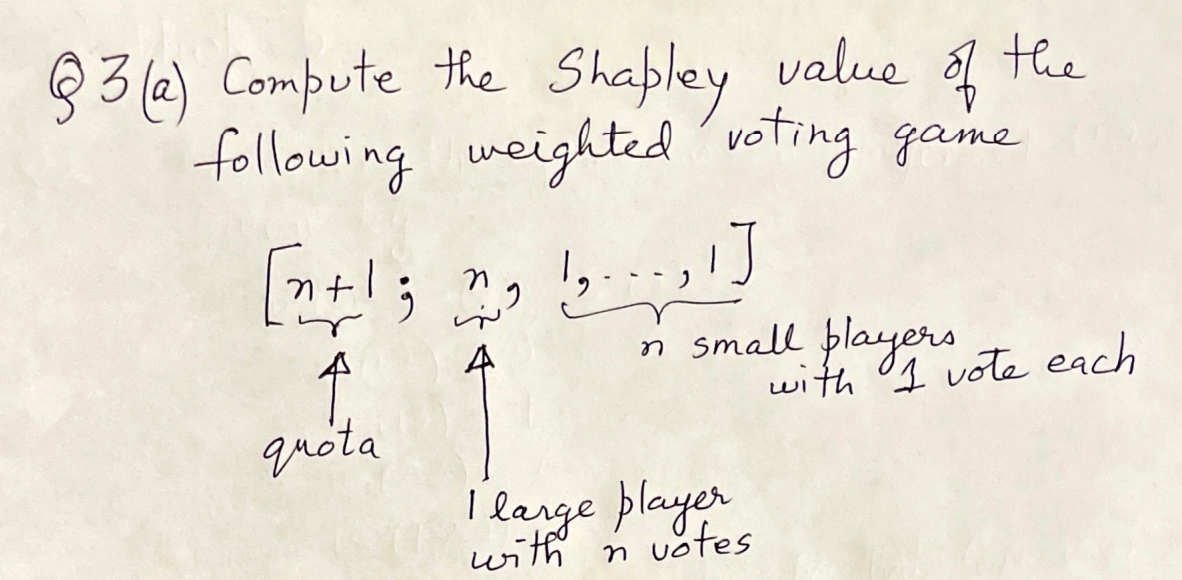 Q3(a) Compute the Shapley value of the
following weighted voting game
[n+1; n, 1, ..., 1]
n small players
with 1 vote each
quota
1 large player
with n votes